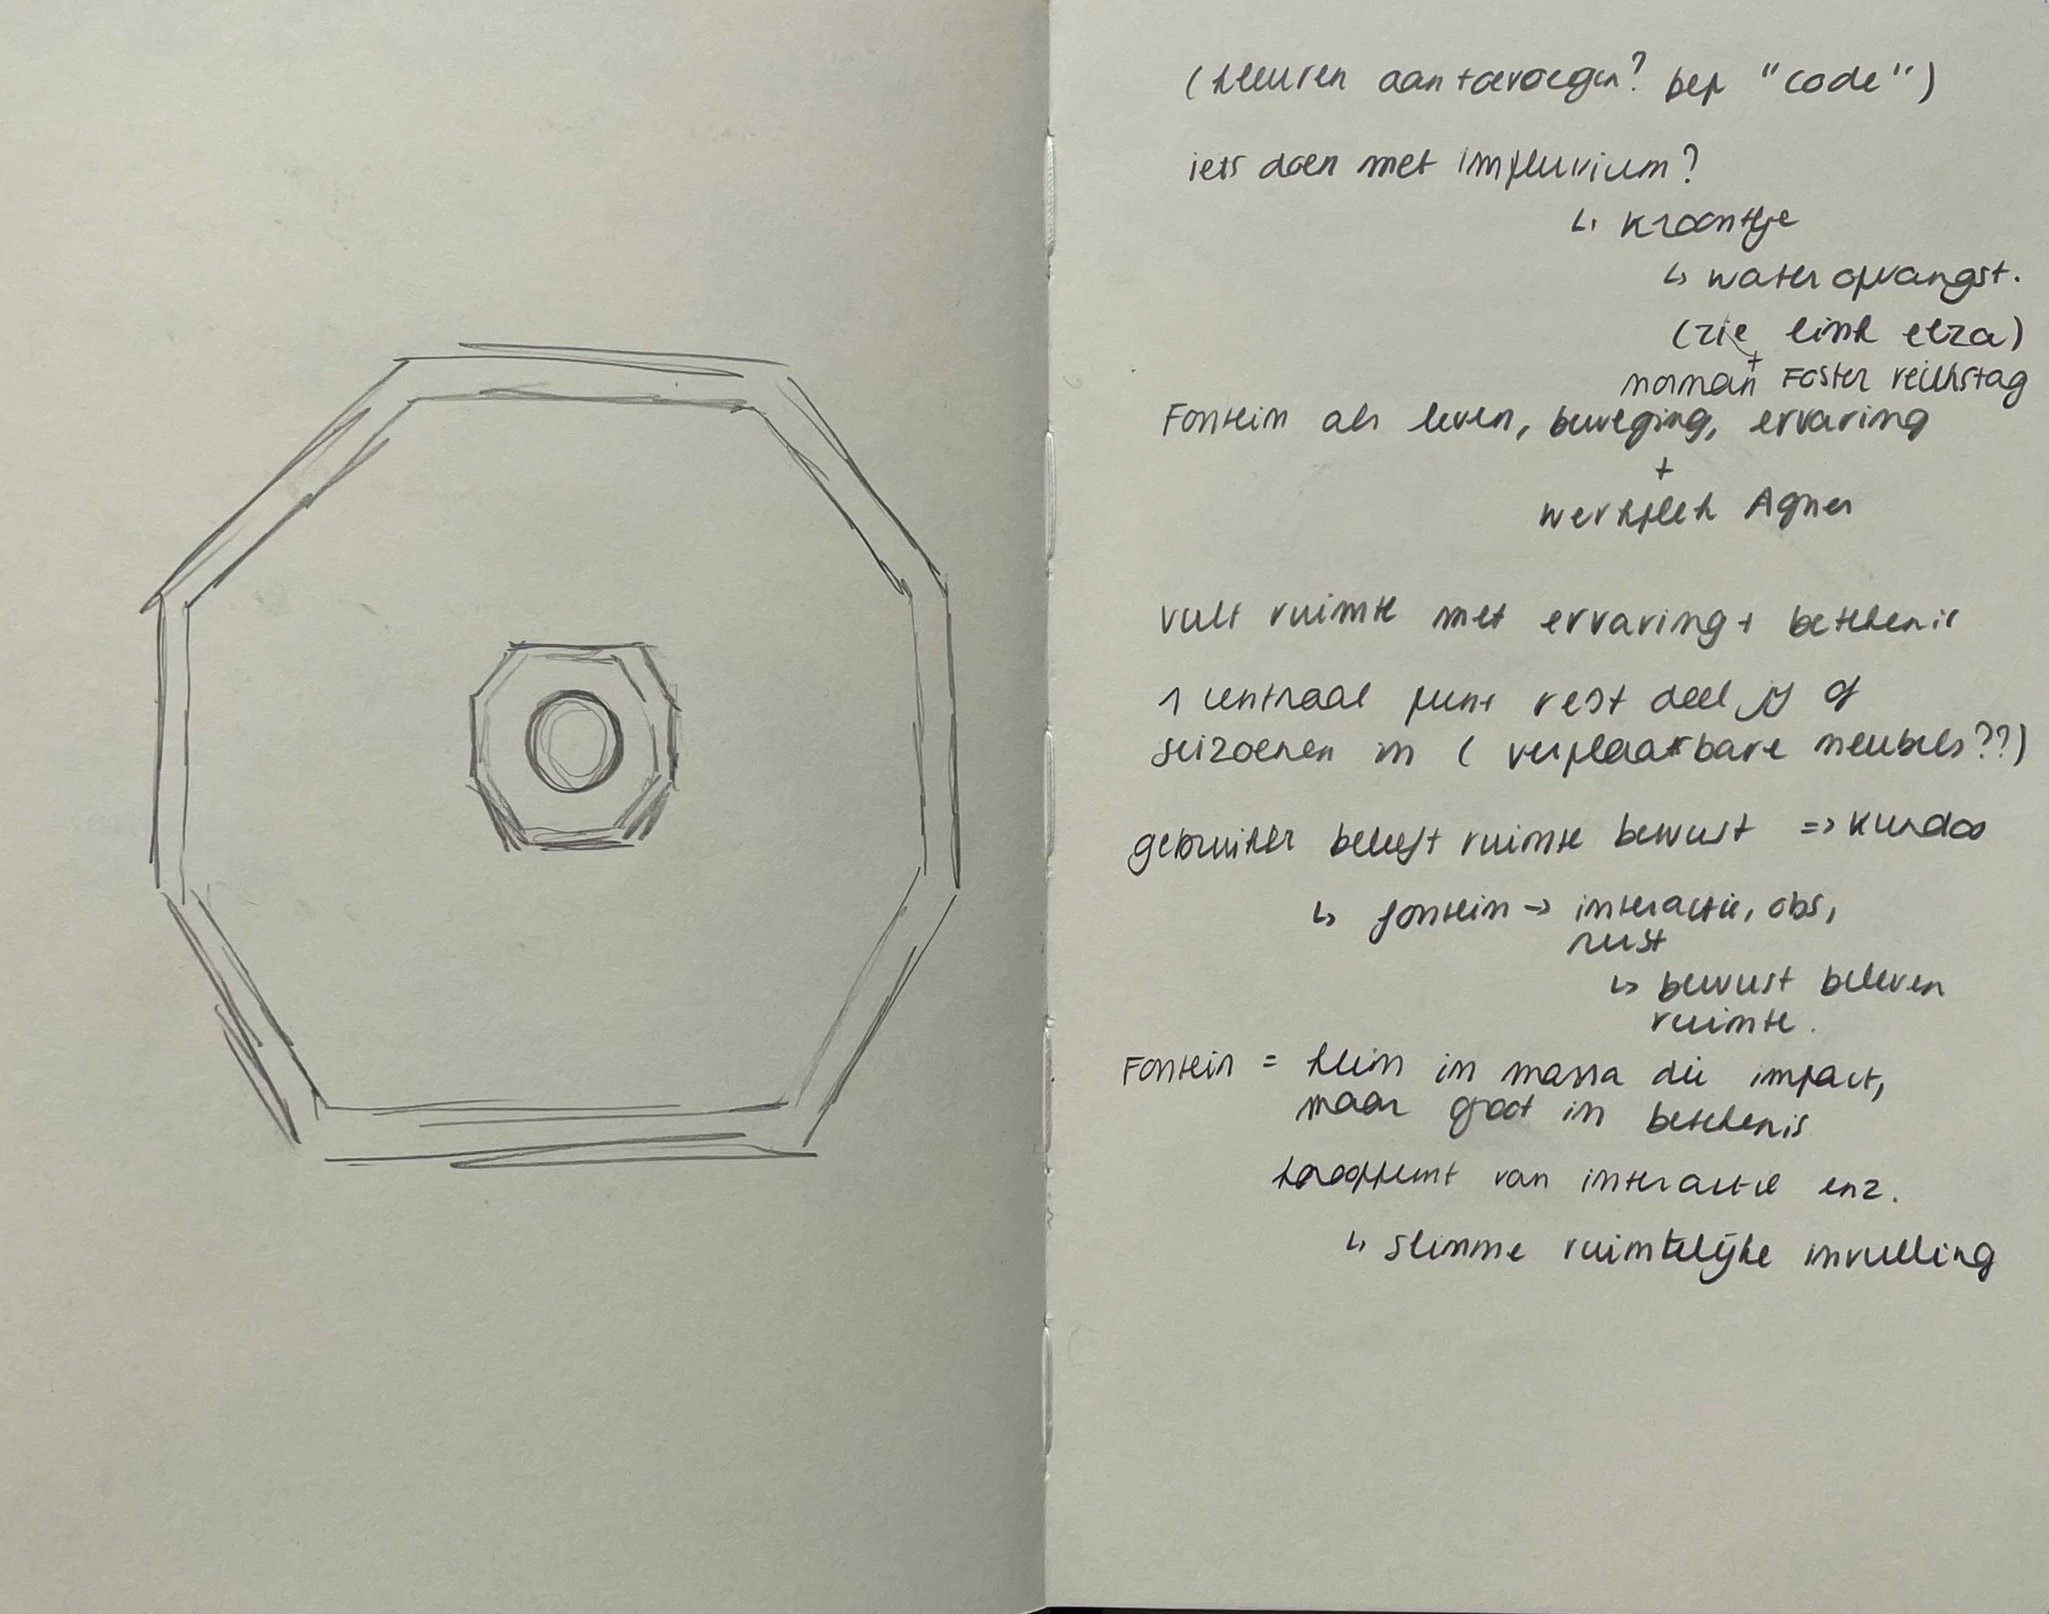 (kleuren aan toevoegen? bep "code")
iets doen met impluvium?
↳ kroontje
↳ water opvangst.
(zie link elza)
+
norman Foster reichstag
Fontein als leven, beweging, ervaring
+
werkplek Agnes
vult ruimte met ervaring + betekenis
1 centraal punt rest deel jij of
seizoenen in ( verplaatbare meubels??)
gebruiker beleeft ruimte bewust =>
↳ fontein → interactie, obs,
rust
↳ bewust beleven
ruimte.
Fontein = klein in massa die impact,
maar groot in betekenis
knooppunt van interactie enz.
↳ slimme ruimtelijke invulling